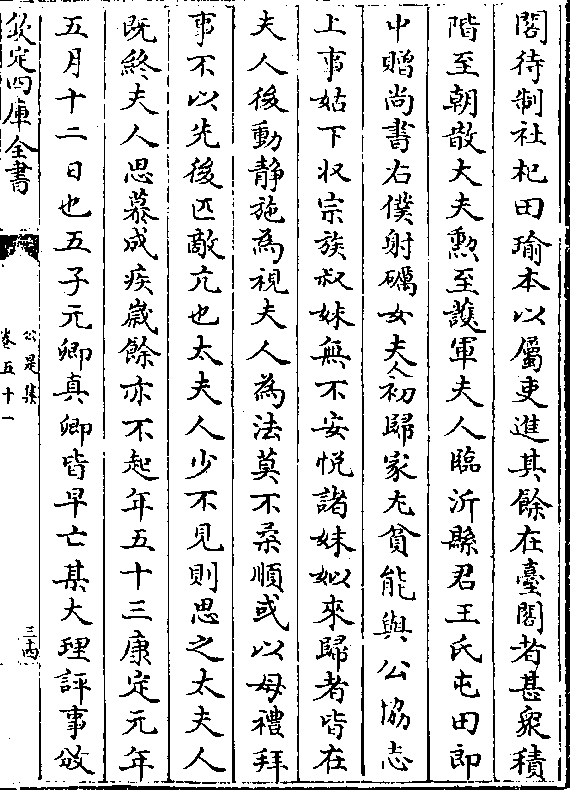 閣待制杜杞田瑜本以屬吏進其餘在臺閣者甚衆積
階至朝散大夫勲至護軍夫人臨沂縣君王氏屯田郎
中贈尚書右僕射礪女夫人初歸家尤貧能與公協志
上事姑下収宗族叔妹無不安悦諸妹姒來歸者皆在
夫人後動静施為視夫人為法莫不柔順或以母禮拜
事不以先後匹敵亢也太夫人少不見則思之太夫人
既終夫人思慕成疾嵗餘亦不起年五十三康定元年
五月十二日也五子元卿真卿皆早亡某大理評事攽
欽定四庫全書
公是集
卷五十一